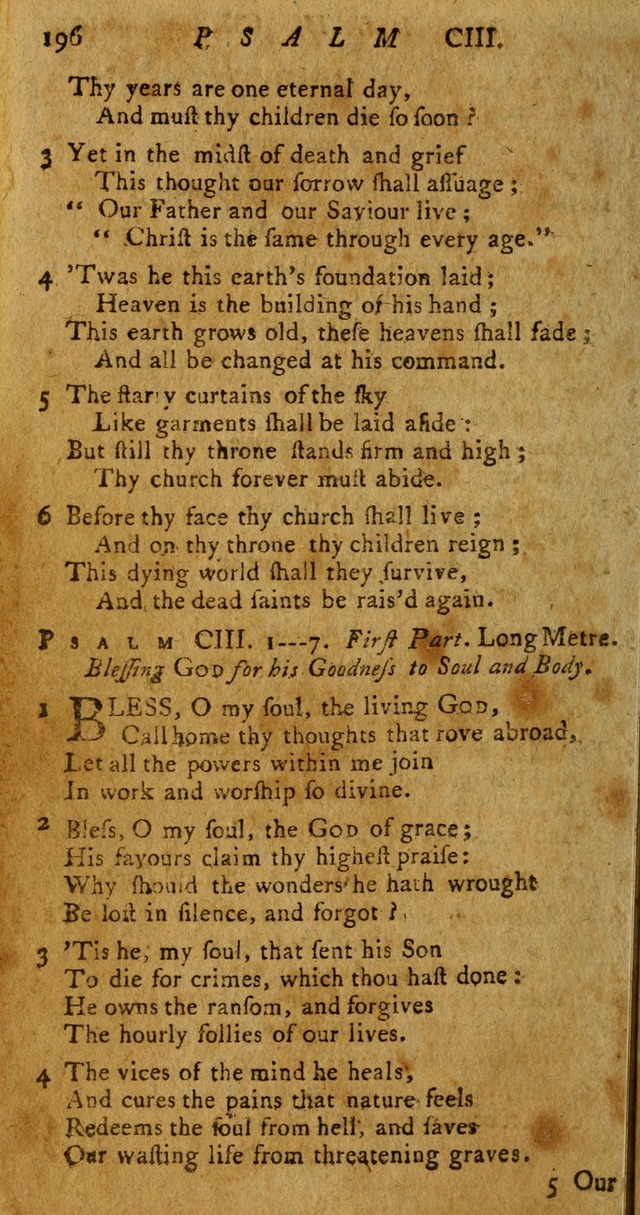 196 PSALM CIII.
Thy years are one eternal day,
And muſt thy children die ſo ſoon?
3 Yet in the midſt of death and grief
This thought our ſorrow ſhall aſſuage;
“ Our Father and our Saviour live;
“ Chriſt is the ſame through every age.”
4 ’Twas he this earth’s foundation laid;
Heaven is the building of his hand;
This earth grows old, theſe heavens ſhall fade;
And all be changed at his command.
5 The ſtarry curtains of the ſky
Like garments ſhall be laid aſide:
But ſtill thy throne ſtands firm and high;
Thy church forever muſt abide.
6 Before thy face thy church ſhall live;
And on thy throne thy children reign;
This dying world ſhall they ſurvive,
And the dead ſaints be rais’d again.
PSALM CIII. 1---7. Firſt Part. Long Metre.
Bleſſing GOD for his Goodneſs to Soul and Body.
1 BLESS, O my ſoul, the living GOD,
Call home thy thoughts that rove abroad,
Let all the powers within me join
In work and worſhip ſo divine.
2 Bleſs, O my ſoul, the GOD of grace;
His favours claim thy higheſt praiſe:
Why ſhould the wonders he hath wrought
Be loſt in ſilence, and forgot?
3 ’Tis he, my ſoul, that ſent his Son
To die for crimes, which thou haſt done:
He owns the ranſom, and forgives
The hourly follies of our lives.
4 The vices of the mind he heals,
And cures the pains that nature feels
Redeems the ſoul from hell, and ſaves
Our waſting life from threatening graves.
5 Our